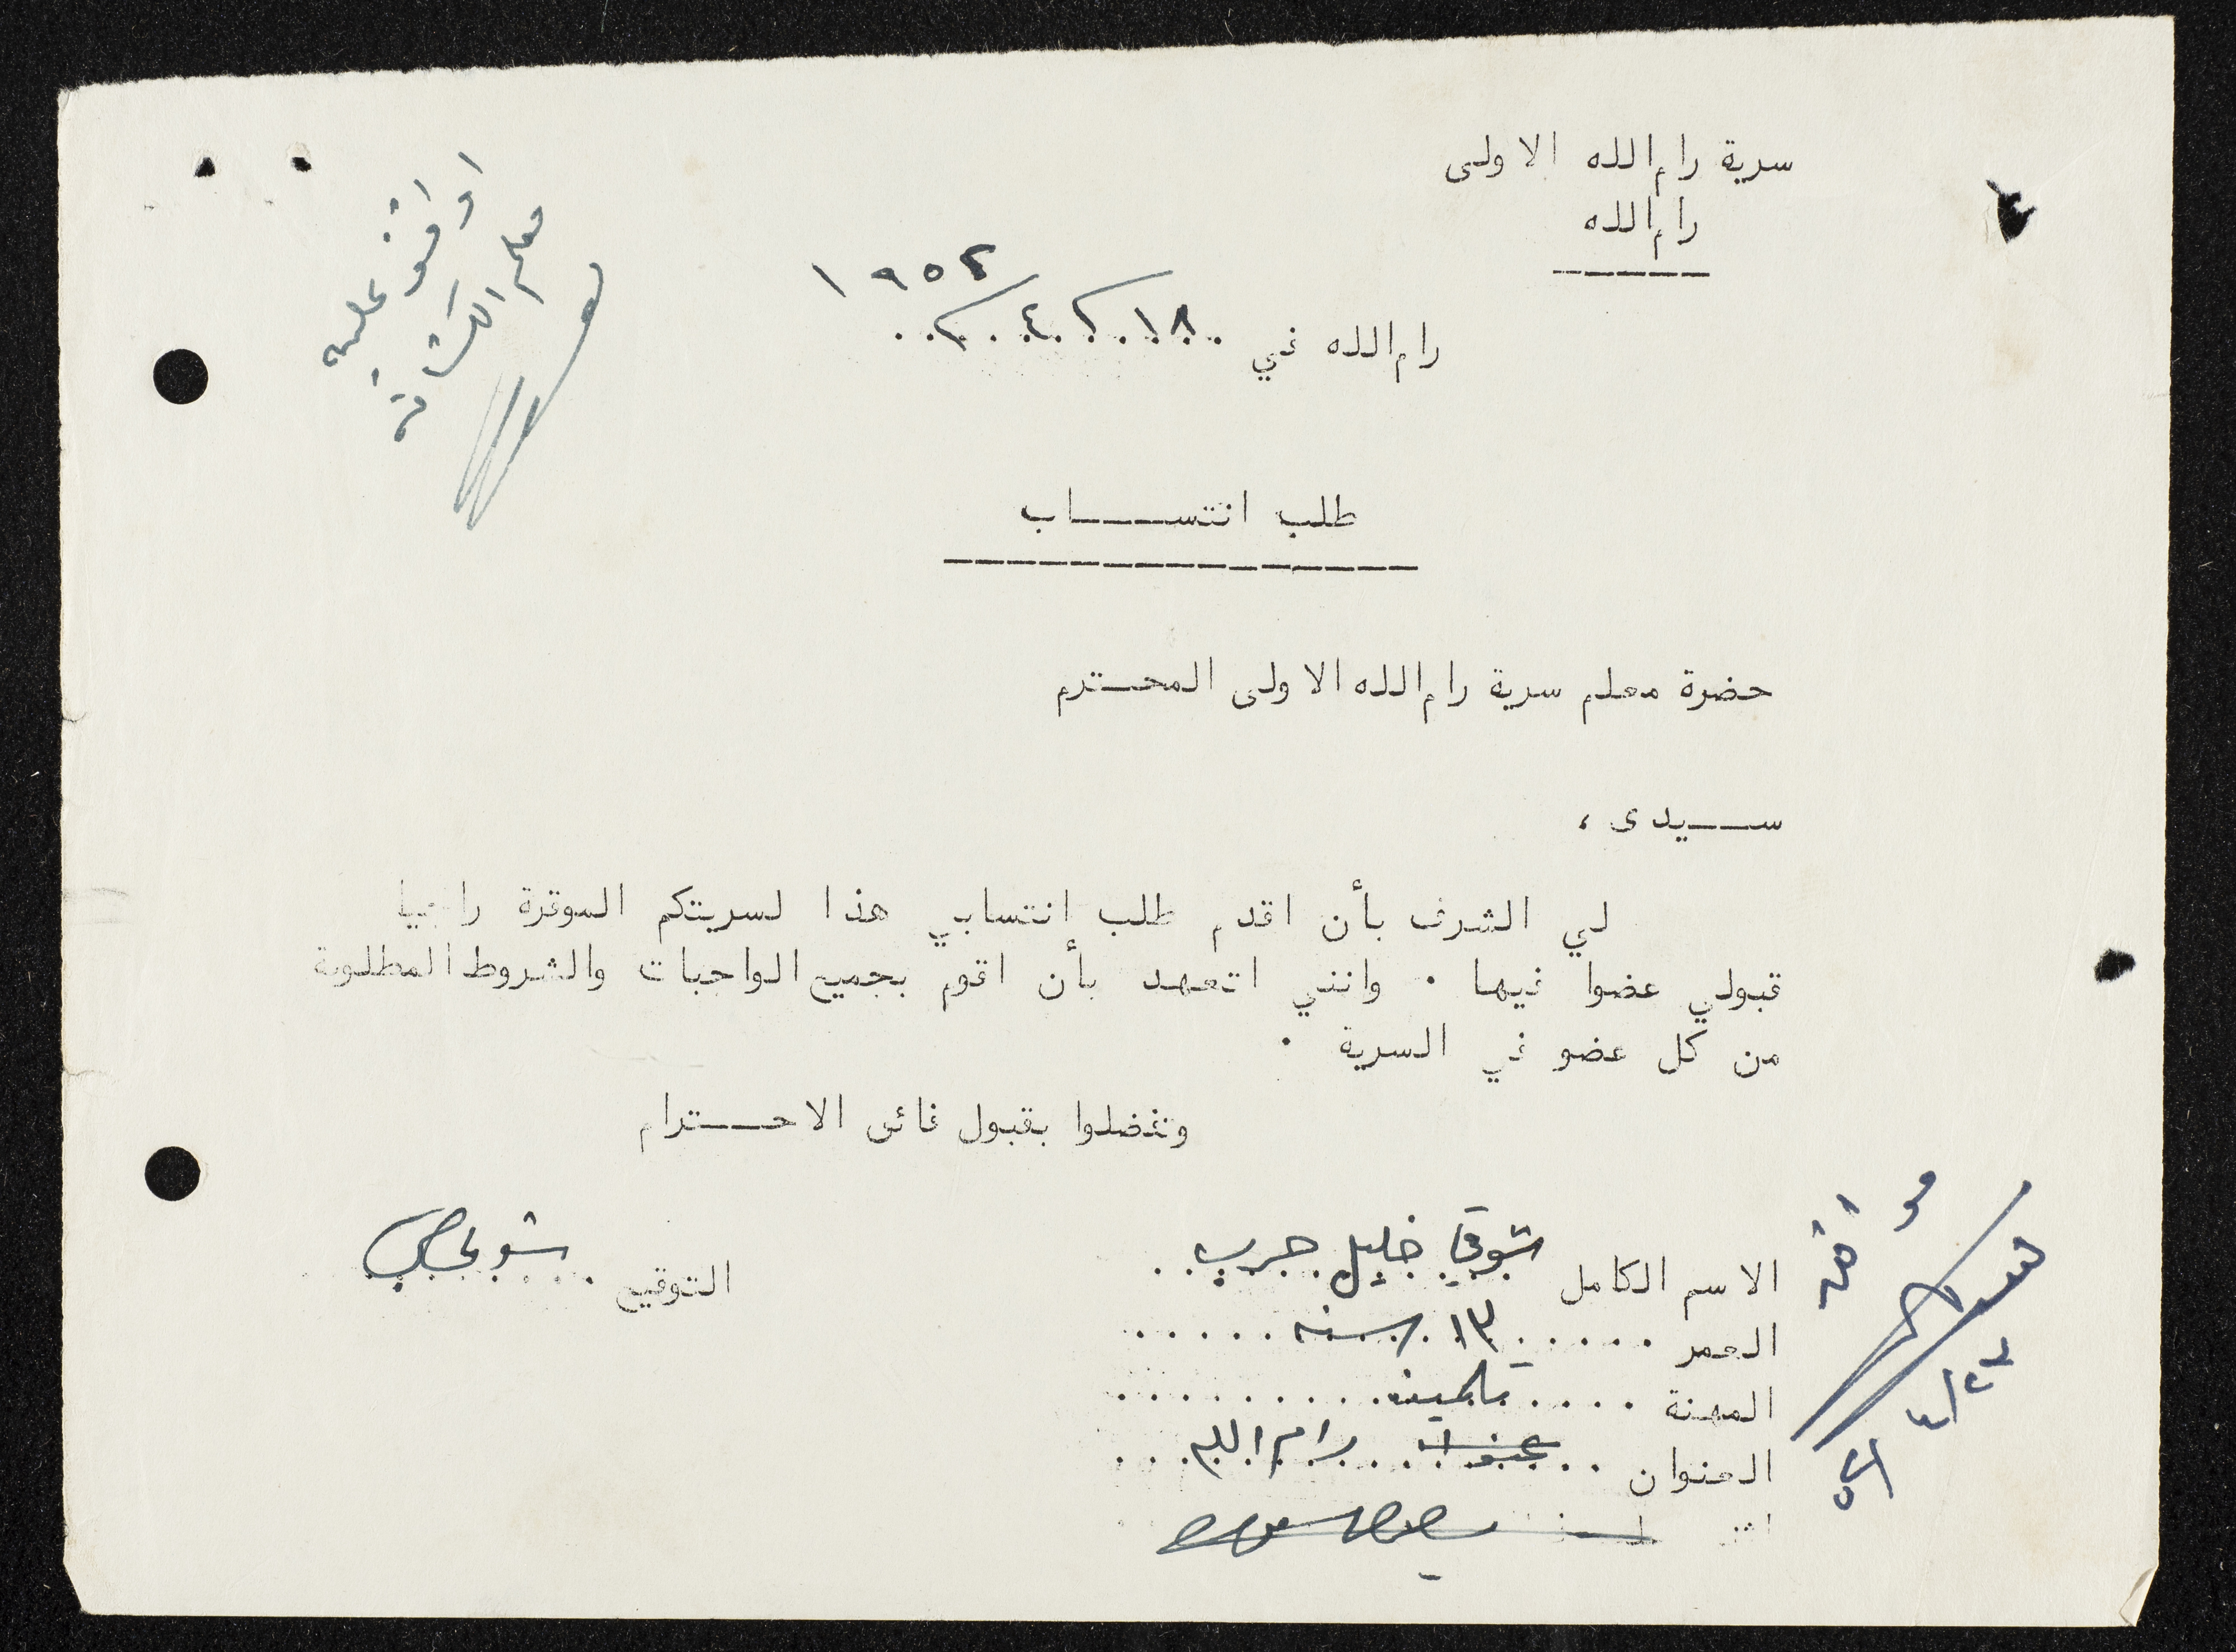 سرية رام الله الاولى
رام الله
اوافق عليه
معلم الكشافة
رام الله في ١٨ / ٤ / ١٩٥٢
طلب انتساب
حضرة معلم سرية رام الله الاولى المحترم
سيدى ،
لي الشرف بأن اقدم طلب إنتسابي هذا لسريتكم الموقرة راجيا
قبولي عضوا فيها . وانني اتعهد بأن اقوم بجميع الواجبات والشروط المطلوبة
من كل عضو في السرية .
وتفضلوا بقبول فائق الاحترام
موافق
الاسم الكامل شوقي خليل حرب
التوقيع
العمر ١٣ سنه
المهنة تلميذ
العنوان رام الله